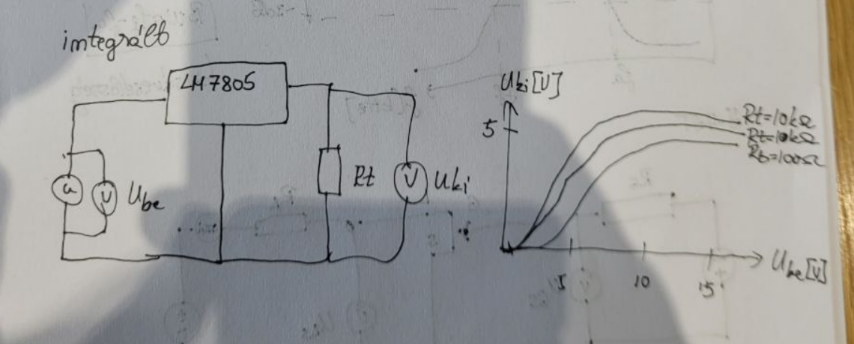 integrált
LM7805
u
V
Ube
Rt
V
Uki
Uki[V]
5
Rt=10kΩ
Rt=10kΩ
Rt=100Ω
5
10
15
Ube[V]